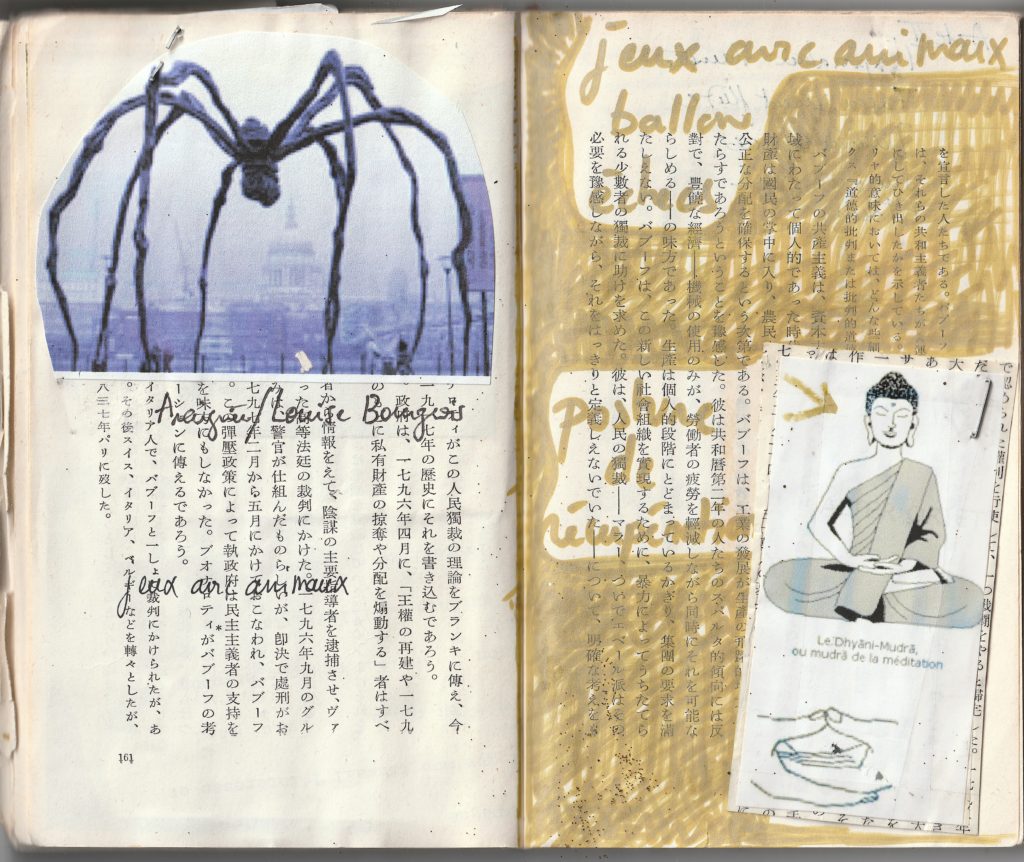 Araignée/Louise Bourgeois
jeux avec animaux
がこの人民獨裁の理論をブランキに傳え、今
七年の歷史にそれを書き込むであろう。
政は、一七九六年四月に、「王權の再建や一七九
に私有財產の掠奪や分配を煽動する」者はすべ
情報をえて、陰謀の主要 導者を逮捕させ、ヴァ
った 等法廷の裁判にかけた 七九六年九月のグル
警官が仕組んだものら が、卽決で處刑がお
七九七年二月から五月にかけ おこなわれ、バブーフ
。こ 彈壓政策によって執政 府は民主主義者の支持を
を味 にもしなかった。ブオ ティ*がバブーフの考
ー ンに傳えるであろう。
イタリア人で、バブーフと一しょ 裁判にかけられたが、あ
。その後スイス、イタリア、ベル などを轉々としたが、
八三七年パリに殘した。
161
jeux avec animaux
ballon
を宣言した人たちである。バブーフ
は、それらの共和主義者たちが、運
にしてひき出したかを示している。
リャ的意味においては、どんな些細
クス『道德的批判または批判的道
バブーフの共產主義は、資本
域にわたって個人的であった時
財產は國民の掌中に入り、農民
公正な分配を確保するという次第である。バブーフは、工業の發展が生產の
たらすであろうということを豫感した。彼は共和曆第二年の人たちのスパルタ的傾向には反
對で、豐饒な經濟――機械の使用のみが、勞働者の疲勞を輕減しながら同時にそれを可能な
らしめる――の味方であった。生產は個人的段階にとどまっているかぎり、集團の要求を滿
たしえない。バブーフは、この新しい社會組織を實現するために、暴力によってうちたてら
れる少數者の獨裁に助けを求めた。彼は、人民の獨裁――マラー、ついでエベール派はその
必要を豫感しながら、それをはっきりと定義しえないでいた――について、明確な考えを
Le Dhyāni-Mudrā,
ou mudrā de la méditation